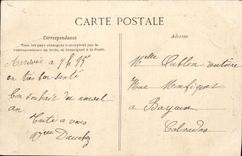 CARTE POSTALE
Correspondance
Adresse
Tous les pays étrangers n'acceptent pas la
Correspondance au verso, se renseigner à la Poste.
Arrivée à 7 h 95
en très bon santé
Bon souhait du nouvel
an
Toute à vous
Melle Oublen couture
Rue
à Bayeux
Calvados